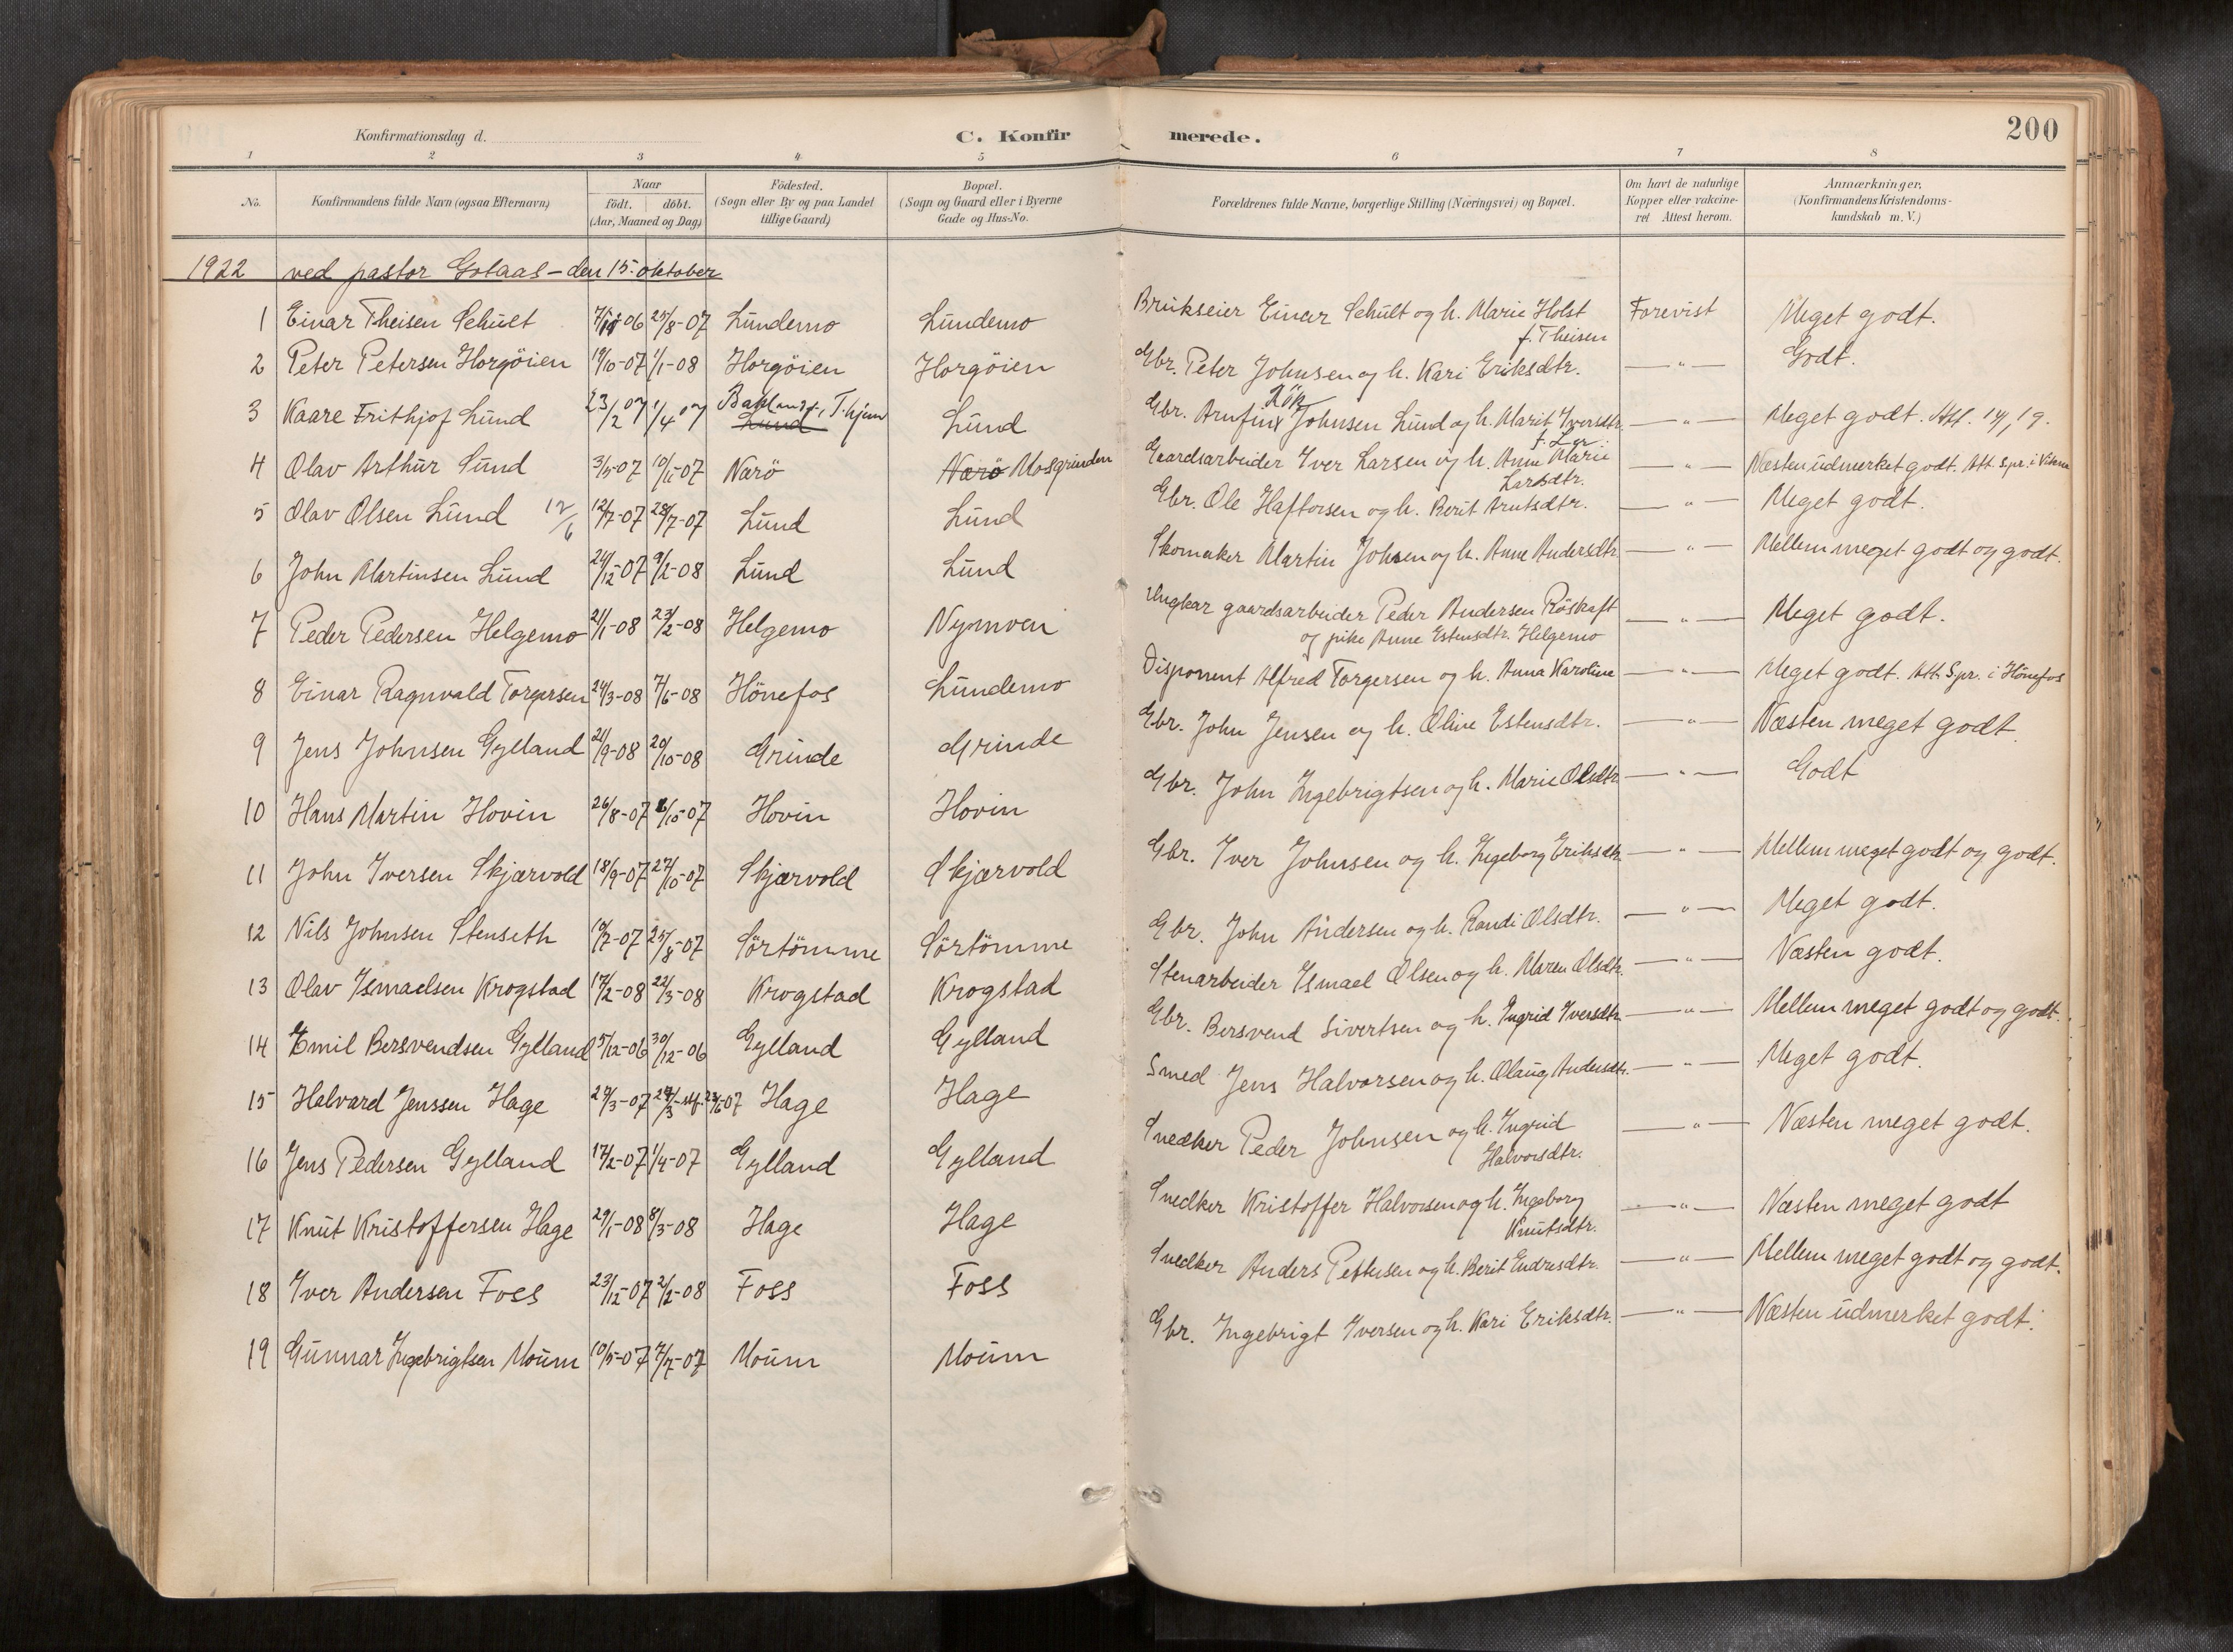 Konfirmationsdag d.
C. Konfirmerede.
200
1 2 3 4 5 6 7 8
No.
Konfirmandens fulde Navn (ogsaa Efternavn)
Naar
födt. döbt.
(Aar, Maaned og Dag)
Födested.
(Sogn eller By og paa Landet
tillige Gaard)
Bopæl.
(Sogn og Gaard eller i Byerne
Gade og Hus-No.
Forældrenes fulde Navne, borgerlige Stilling (Næringsvei) og Bopæl.
Om havt de naturlige
Kopper eller vakcine-
ret Attest herom.
Anmærkninger.
(Konfirmandens Kristendoms-
kundskab m. V.)
1922 ved pastor Gotaas - den 15. oktober
1 Einar Theisen Schult 06 25/8-07 Lundemo Lundemo Brukseier Einar Schult og h. Marie Holst f. Theisen Forevist Meget godt.
2 Peter Petersen Horgöien 19/10-07 1/1-08 Horgöien Horgöien Gbr. Peter Johnsen og h. Kari Eriksdtr. — " — Godt.
3 Kaare Frithjof Lund 23/2 07 1/4 07 Lund Gbr. Arnfin Johnsen Lund og h. Marit Iversdtr. — " — Meget godt.
4 Olav Arthur Lund 3/5-07 Nærö Nærö Mosgrinden Gaardsarbeider Iver Larsen og h. Anne Marie Larsdtr. — " — Næsten udmerket godt. Att. Spr. i
5 Olav Olsen Lund 12/6 12/7-07 28/7-07 Lund Lund Gbr. Ole Haftorsen og h. Berit Arntsdtr. — " — Meget godt.
6 John Martinsen Lund 24/12-07 9/2-08 Lund Lund Skomaker Martin Johnsen og h. Anne Andersdtr. — " — Mellem meget godt og godt.
7 Peder Pedersen Helgemo 21/1-08 23/2-08 Helgemo Nymoen Ungkar gaardsarbeider Peder Andersen Röskaft
og pike Anne Estensdtr. Helgemo — " — Meget godt.
8 Einar Ragnvald Torgersen 24/3-08 7/6-08 Hönefos Lundemo Disponent Alfred Torgersen og h. Anna Karoline — " — Meget godt. Att. Spr. i Hönefos
9 Jens Johnsen Gylland 21/9-08 20/10-08 Grinde Grinde Gbr. John Jensen og h. Oline Estensdtr. — " — Næsten meget godt.
10 Hans Martin Hovin 26/8-07 6/10-07 Hovin Hovin Gbr. John Ingebrigtsen og h. Marie Olsdtr. — " — Godt
11 John Iversen Skjærvold 18/9-07 27/10-07 Skjærvold Skjærvold Gbr. Iver Johnsen og h. Ingeborg Eriksdtr. — " — Mellem meget godt og godt.
12 Nils Johnsen Stenseth 10/7-07 25/8-07 Sörtömme Sörtömme Gbr. John Andersen og h. Randi Olsdtr. — " — Meget godt.
13 Olav Ismaelsen Krogstad 17/2-08 22/3-08 Krogstad Krogstad Stenarbeider Ismael Olsen og h. Maren Olsdtr. — " — Næsten godt.
14 Emil Bersvendsen Gylland 5/12-06 30/12-06 Gylland Gylland Gbr. Bersvend Sivertsen og h. Ingrid Iversdtr. — " — Mellem meget godt og godt.
15 Halvard Jenssen Hage 07 Hage Hage Smed Jens Halvorsen og h. Olaug Andersdtr. — " — Meget godt.
16 Jens Pedersen Gylland 17/2-07 1/4-07 Gylland Gylland Snedker Peder Johnsen og h. Ingrid Halvorsdtr. — " — Næsten meget godt.
17 Knut Kristoffersen Hage 29/1-08 8/3-08 Hage Hage Snedker Kristoffer Halvorsen og h. Ingeborg Knutsdtr. — " — Næsten meget godt
18 Iver Andersen Foss 23/12-07 2/2-08 Foss Foss Snedker Anders Pettersen og h. Berit Endresdtr. — " — Mellem meget godt og godt.
19 Gunnar Ingebrigtsen Moum 10/5-07 7/7-07 Moum Moum Gbr. Ingebrigt Iversen og h. Kari Eriksdtr. — " — Næsten udmerket godt.